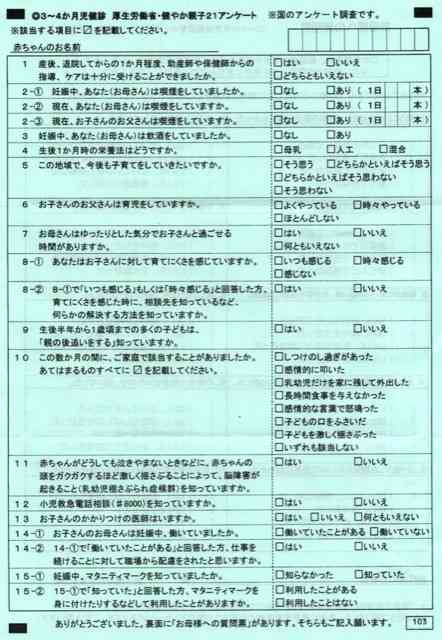 ◎3～4か月児健診 厚生労働省・健やか親子21アンケート ※国のアンケート調査です。
※該当する項目に☑を記載してください。
赤ちゃんのお名前
1 産後、退院してからの1か月程度、助産師や保健師からの 指導、ケアは十分に受けることができましたか。
□はい □いいえ
□どちらともいえない
2-① 妊娠中、あなた(お母さん)は喫煙をしていましたか。 □なし □あり ( 1日 本 )
2-② 現在、あなた(お母さん)は喫煙をしていますか。 □なし □あり ( 1日 本 )
2-③ 現在、お子さんのお父さんは喫煙をしていますか。 □なし □あり ( 1日 本 )
3 妊娠中、あなた(お母さん)は飲酒をしていましたか。 □なし □あり
4 生後1か月時の栄養法はどうですか。 □母乳 □人工 □混合
5 この地域で、今後も子育てをしていきたいですか。 □そう思う □どちらかといえばそう思う
□どちらかといえばそう思わない
□そう思わない
6 お子さんのお父さんは育児をしていますか。 □よくやっている □時々やっている
□ほとんどしない
7 お母さんはゆったりとした気分でお子さんと過ごせる
時間がありますか。
□はい □いいえ
□何ともいえない
8-① あなたはお子さんに対して育てにくさを感じていますか。 □いつも感じる □時々感じる
□感じない
8-② 8-①で「いつも感じる」もしくは「時々感じる」と回答した方、
育てにくさを感じた時に、相談先を知っているなど、
何らかの解決する方法を知っていますか。
□はい □いいえ
9 生後半年から1歳頃までの多くの子どもは、
「親の後追いをする」知っていますか。
□はい □いいえ
10 この数か月の間に、ご家庭で該当することがありましたか。
あてはまるものすべてに☑を記載してください。
□しつけのし過ぎがあった
□感情的に叩いた
□乳幼児だけを家に残して外出した
□長時間食事を与えなかった
□感情的な言葉で怒鳴った
□子どもの口をふさいだ
□子どもを激しく揺さぶった
□いずれも該当しない
11 赤ちゃんがどうしても泣きやまないときなどに、赤ちゃんの
頭をガクガクするほど激しく揺さぶることによって、脳障害が
起きること(乳幼児揺さぶられ症候群)を知っていますか。
□はい □いいえ
12 小児救急電話相談(♯8000)を知っていますか。 □はい □いいえ
13 お子さんのかかりつけの医師はいますか。 □はい □いいえ □何ともいえない
14-① お子さんのお母さんは妊娠中、働いていましたか。 □働いていたことがある □働いていない
14-② 14-①で「働いていたことがある」と回答した方、仕事を
続けることに対して職場から配慮をされたと思いますか。
□はい □いいえ
15-① 妊娠中、マタニティマークを知っていましたか。 □知らなかった □知っていた
15-② 15-①で「知っていた」と回答した方、マタニティマークを
身に付けたりするなどして利用したことがありますか。
□利用したことがある
□利用したことはない
ありがとうございました。裏面に「お母様への質問票」があります。そちらもご記入願います。 103